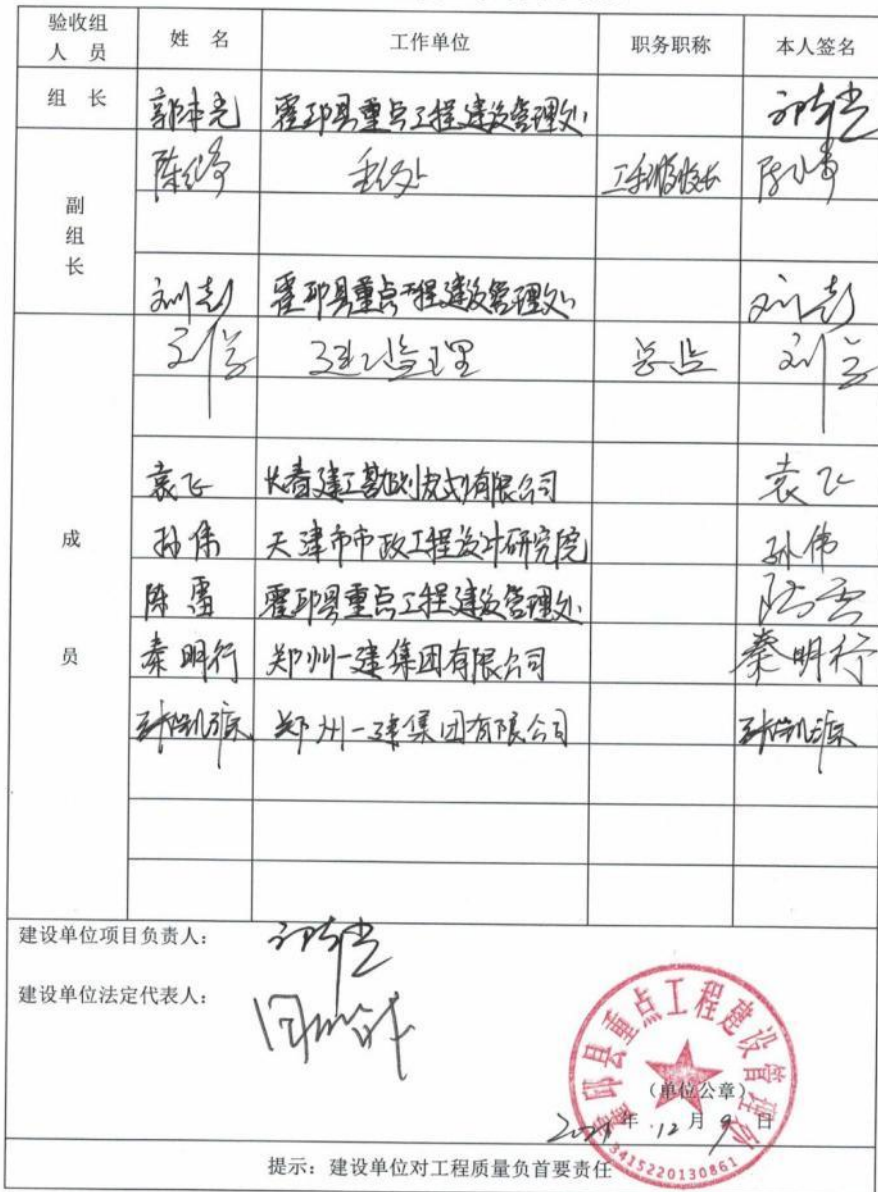 验收组人 员 姓 名 工作单位 职务职称 本人签名
组 长 郭本光 霍邱县重点工程建设管理处
副组长
重点处
刘彭 霍邱县重点工程建设管理处 刘彭
成员
建工监理 总监
袁飞 长春建工勘测规划有限公司 袁飞
孙伟 天津市市政工程设计研究院 孙伟
陈雷 霍邱县重点工程建设管理处 陈雷
秦明行 郑州一建集团有限公司 秦明行
郑州一建集团有限公司
建设单位项目负责人:
建设单位法定代表人:
霍邱县重点工程建设管理处
(单位公章)
2021年 12月 9日
3415220130861
提示:建设单位对工程质量负首要责任